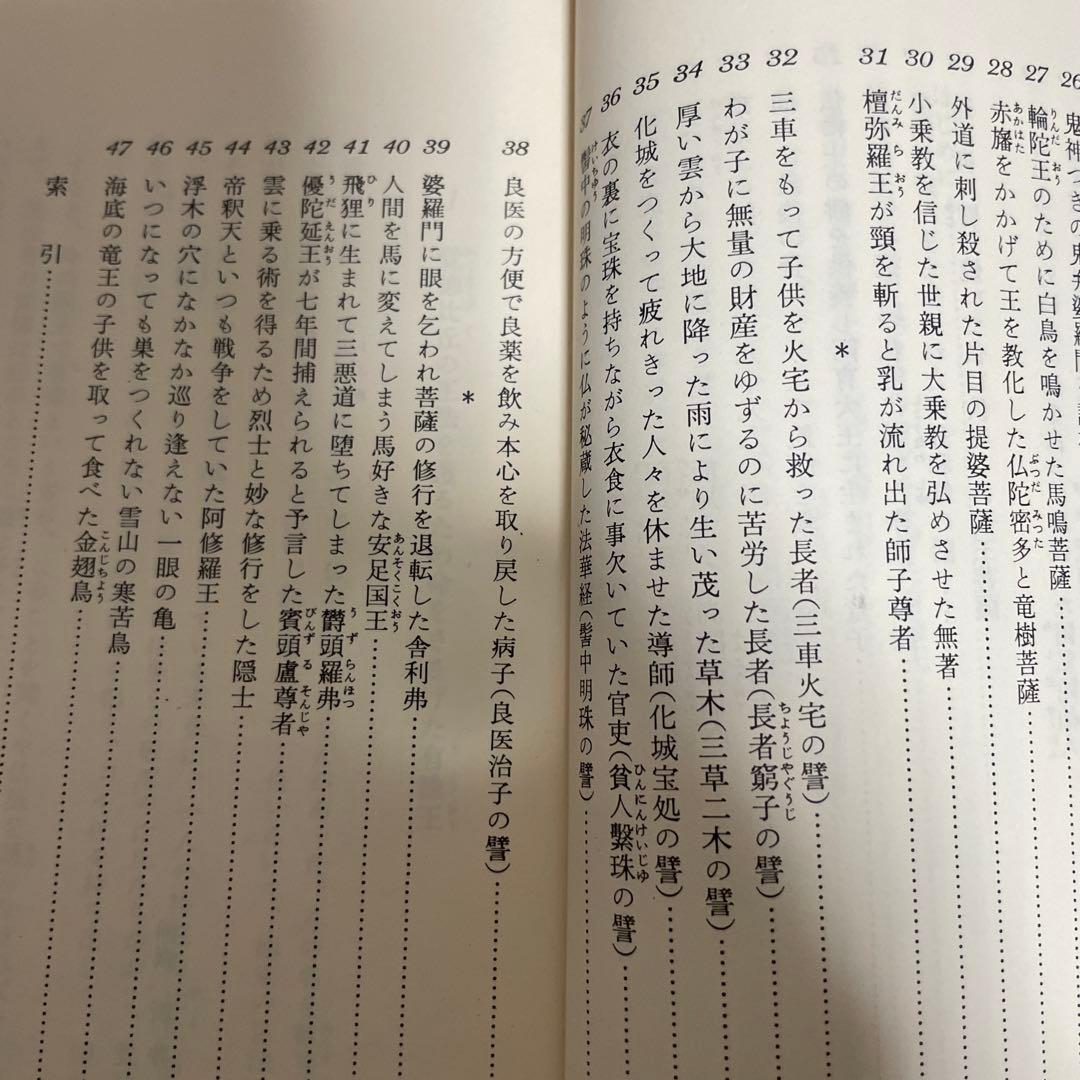 26 鬼神つきの鬼弁婆羅門
27 輪陀王のために白鳥を鳴かせた馬鳴菩薩
28 赤旛をかかげて王を教化した仏陀密多と竜樹菩薩
29 外道に刺し殺された片目の提婆菩薩
30 小乗教を信じた世親に大乗教を弘めさせた無著
31 檀弥羅王が頸を斬ると乳が流れ出た師子尊者
*
32 三車をもって子供を火宅から救った長者(三車火宅の譬)
33 わが子に無量の財産をゆずるのに苦労した長者(長者窮子の譬)
34 厚い雲から大地に降った雨により生い茂った草木(三草二木の譬)
35 化城をつくって疲れきった人々を休ませた導師(化城宝処の譬)
36 衣の裏に宝珠を持ちながら衣食に事欠いていた官吏(貧人繫珠の譬)
37 髻中の明珠のように仏が秘蔵した法華経(髻中明珠の譬)
38 良医の方便で良薬を飲み本心を取り戻した病子(良医治子の譬)
*
39 婆羅門に眼を乞われ菩薩の修行を退転した舎利弗
40 人間を馬に変えてしまう馬好きな安足国王
41 飛狸に生まれて三悪道に堕ちてしまった欝頭羅弗
42 優陀延王が七年間捕えられると予言した賓頭盧尊者
43 雲に乗る術を得るため烈士と妙な修行をした隠士
44 帝釈天といつも戦争をしていた阿修羅王
45 浮木の穴になかなか巡り逢えない一眼の亀
46 いつになっても巣をつくれない雪山の寒苦鳥
47 海底の竜王の子供を取って食べた金翅鳥
索引